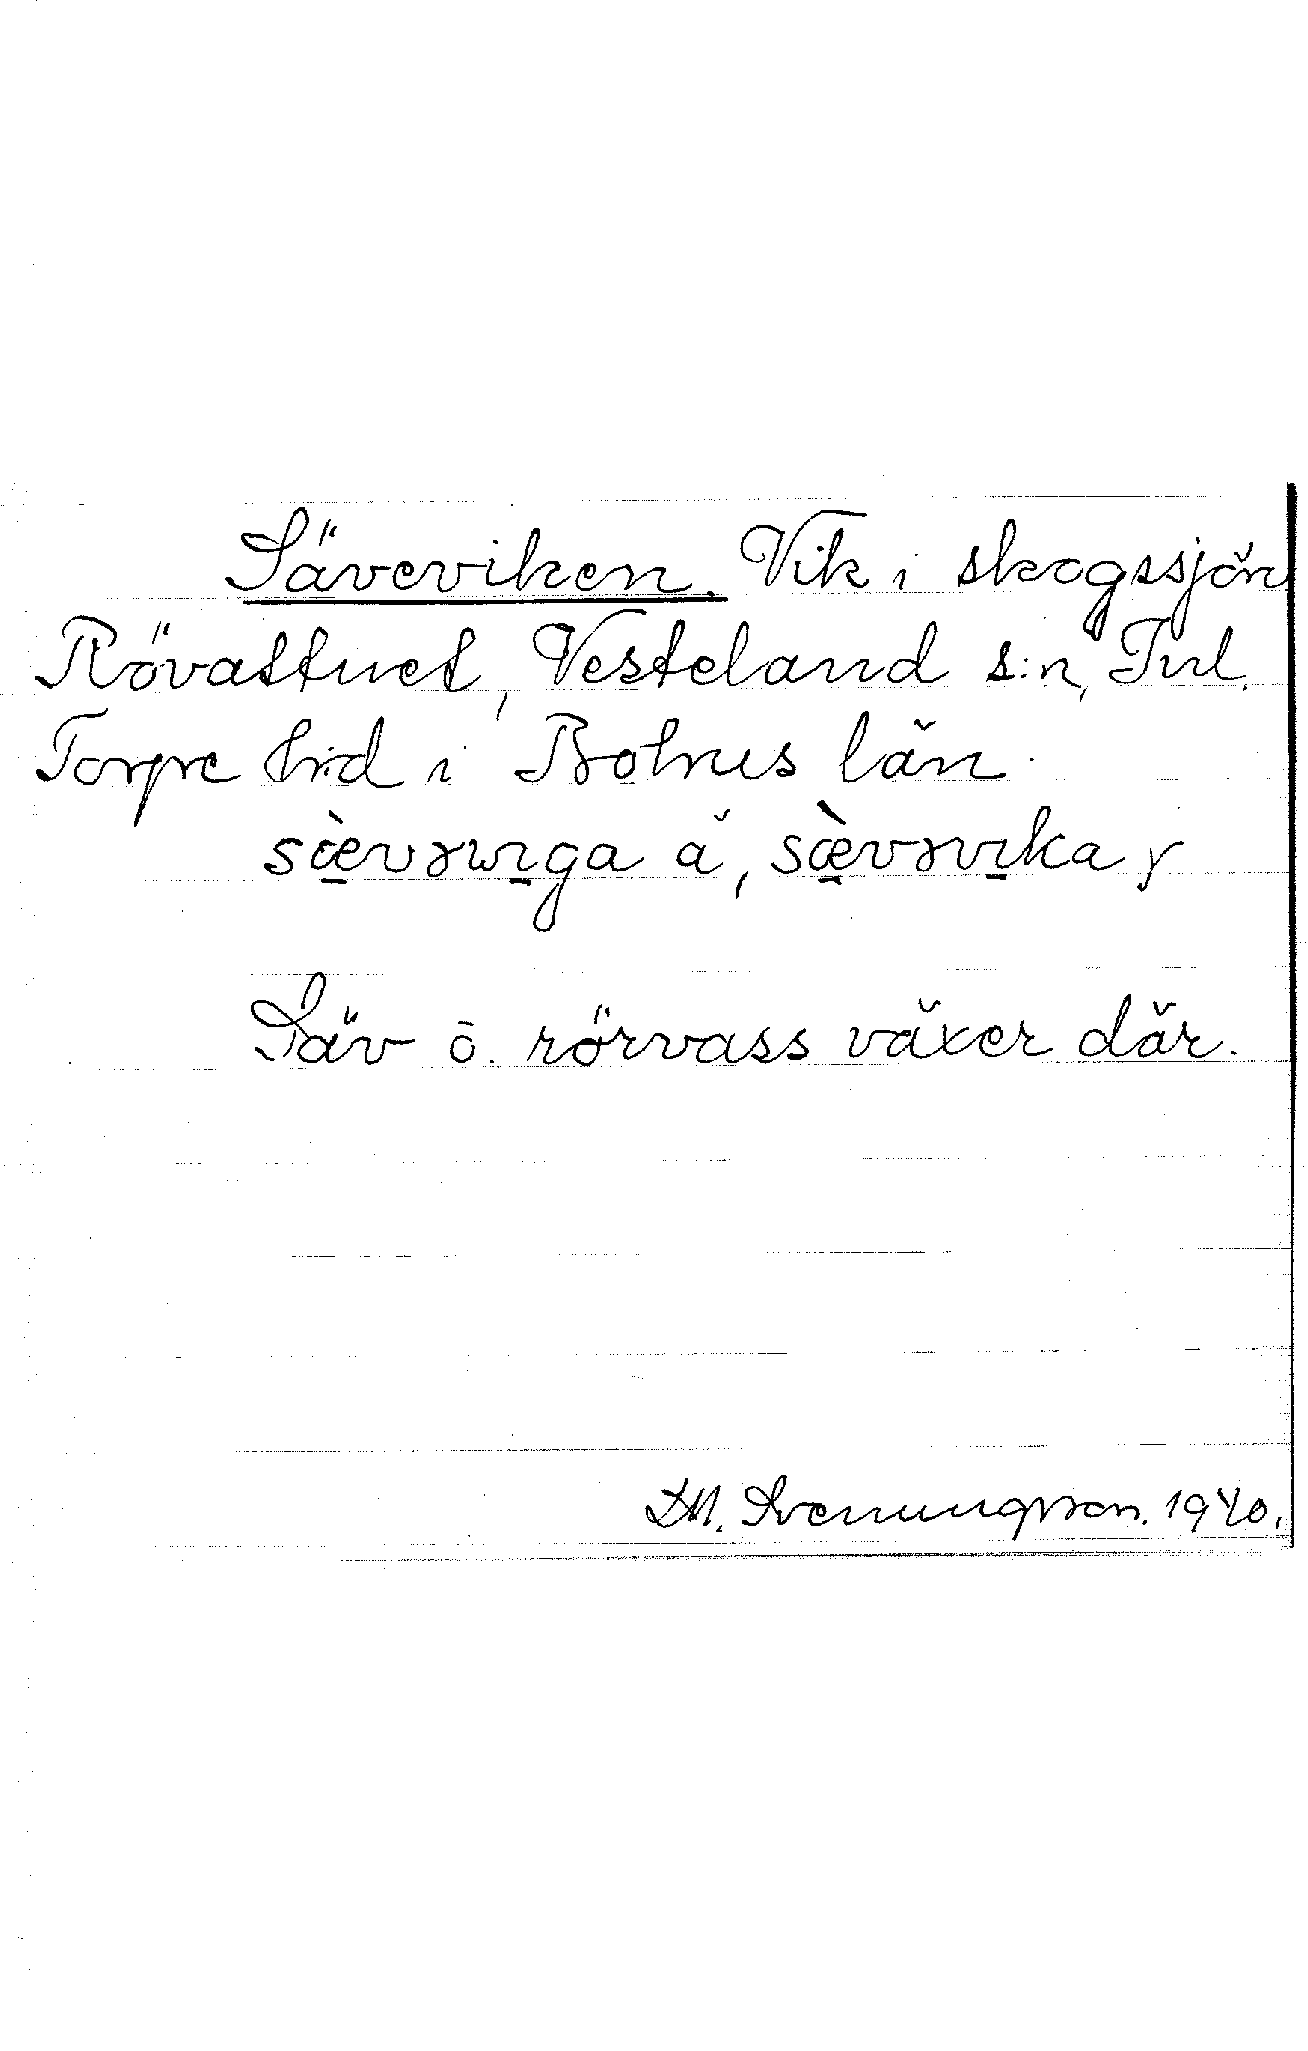 Säveviken. Vik i skogssjön
Rövattnet, Vesteland s:n, Inl.
Torpe hrd i Bohus län.
sæ̀vərvɪga ä, sæ̀vərvɪka y
Säv o. rörvass växer där.
D.A. Svenungsson. 1940.